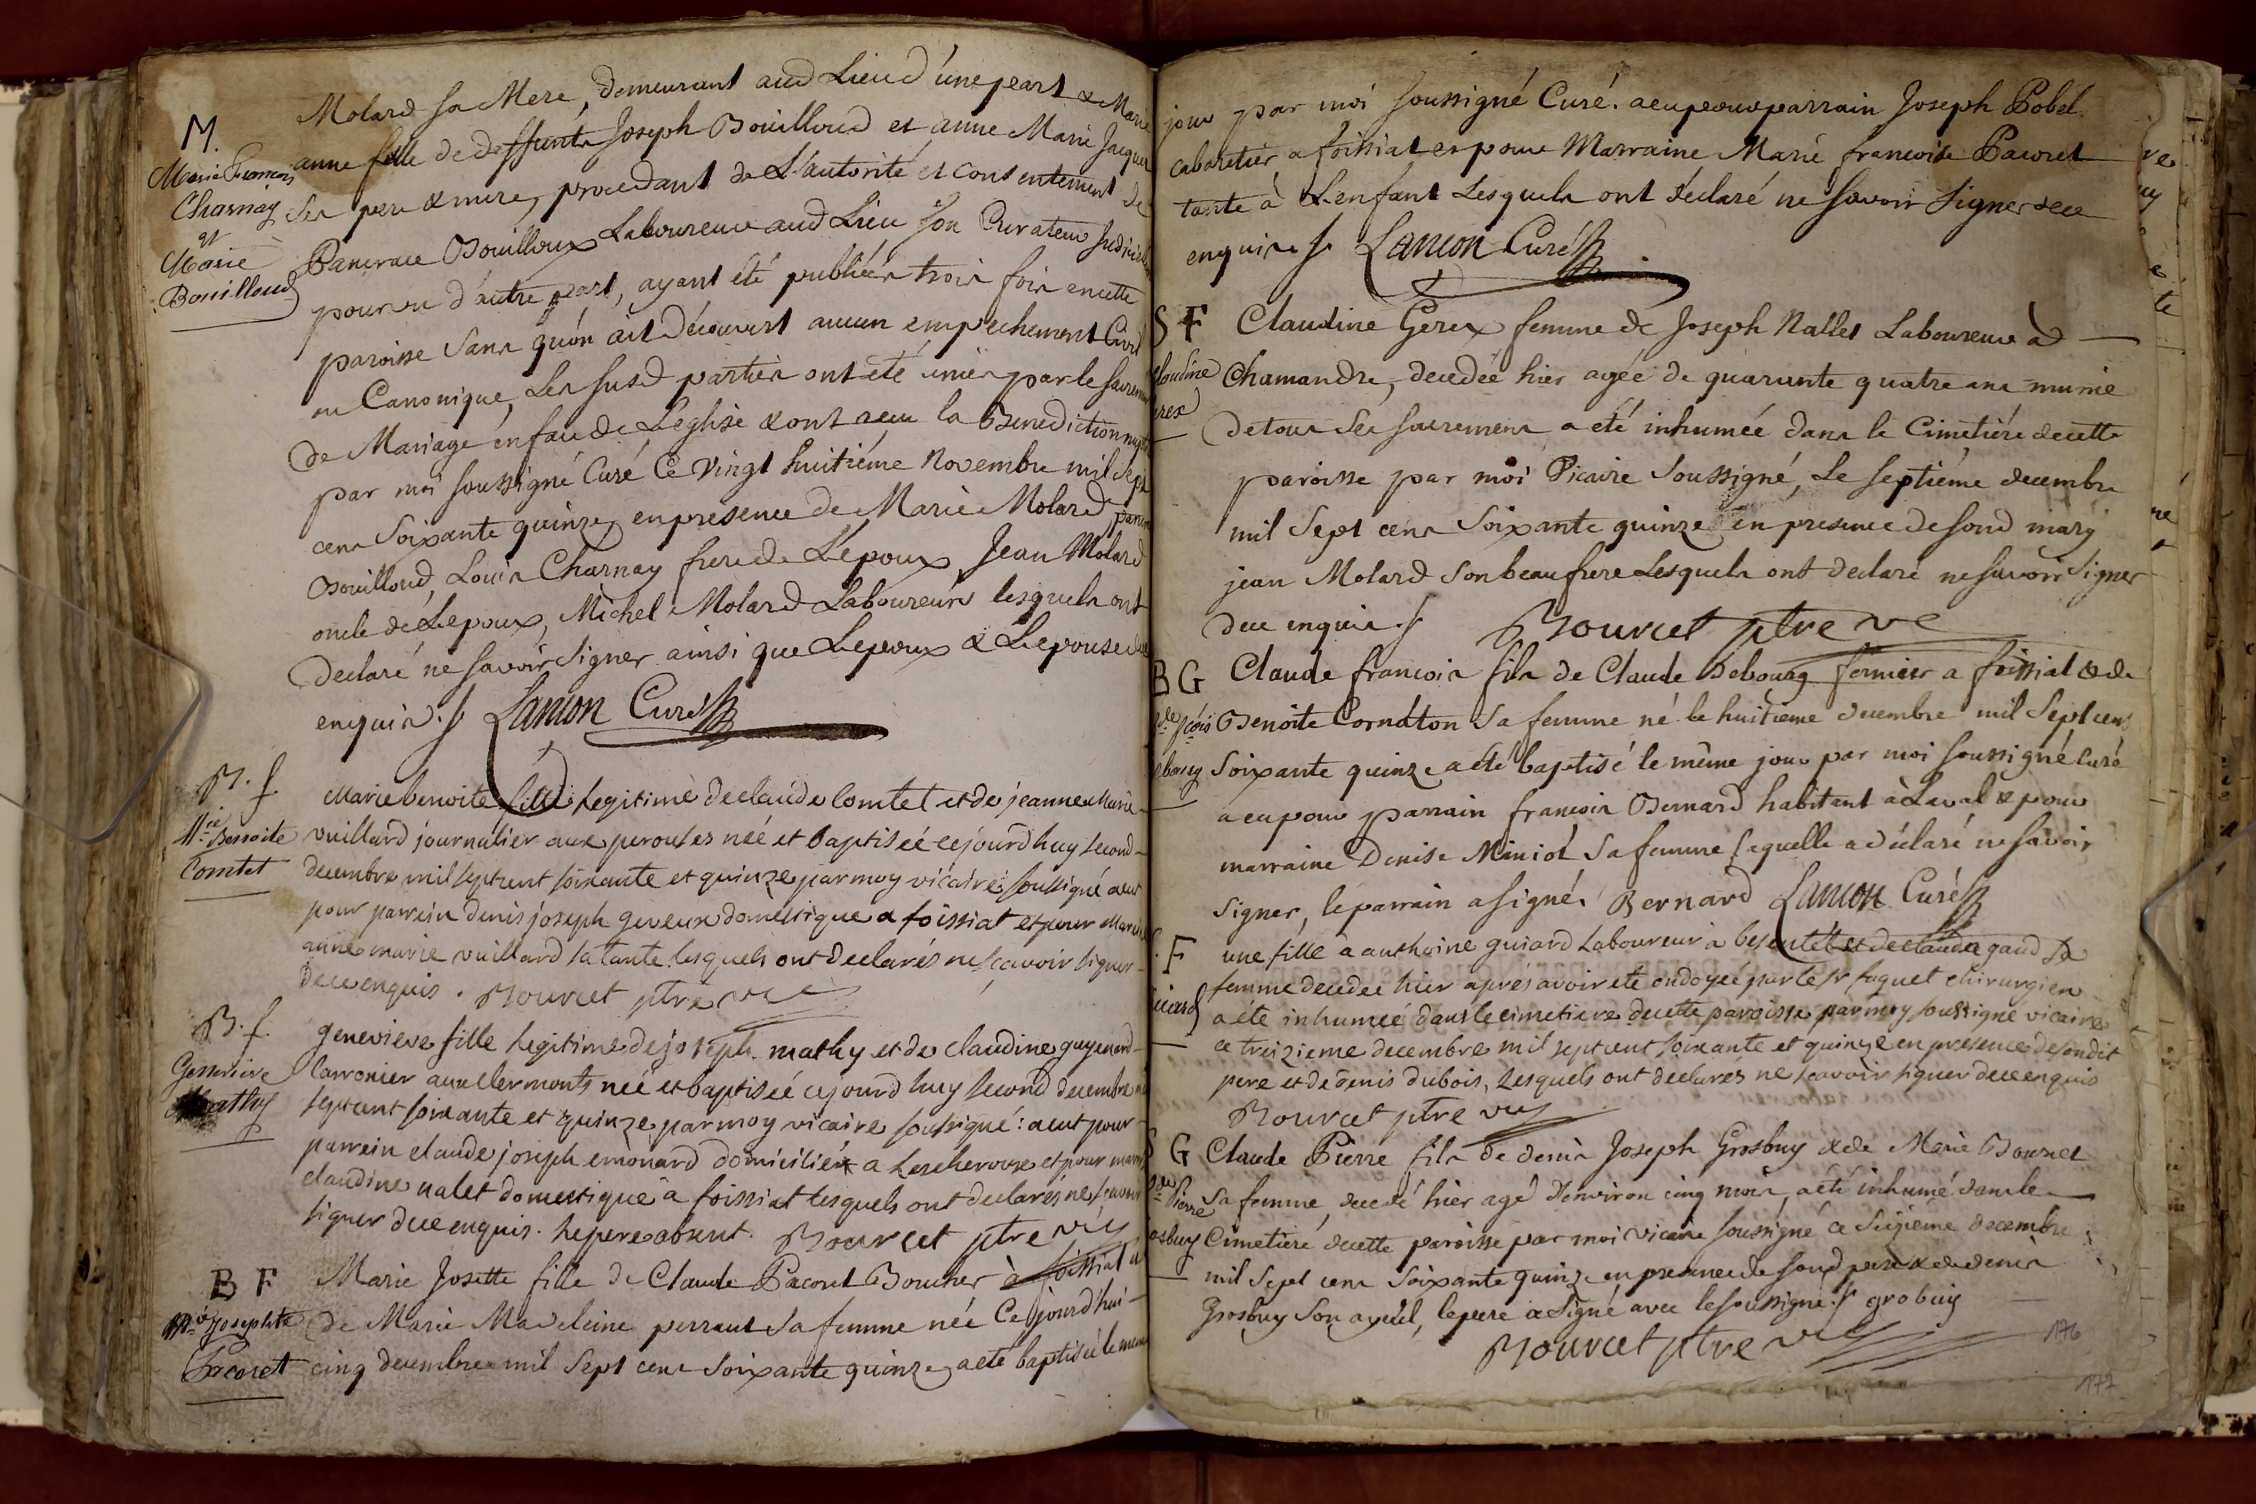 Molard sa Mere, demeurant aud Lieu d'une part & Marie
M.
anne fille de deffunts Joseph Bouilloud et anne Marie Jacquet
Marie François
Charnay
et
Marie
Bouilloud
ses pere & mere, procedant de L'autorité et consentement de
Pancrace Bouilloux Laboureur aud Lieu son Curateur Judiciel
pourvu d'autre part, ayant été publiées trois fois en cette
paroisse sans qu'on ait découvert aucun empechement Civil
ou Canonique, Les susd parties ont été unies par le sacrement
de Mariage en face de L'eglise & ont reçu la Benediction
par moi soussigné Curé Ce vingt huitiéme Novembre mil Sept
cens Soixante quinze, en presence de Marie Molard,
Bouilloud, Louis Charnay frere de L'epoux, Jean Molard
oncle de L'epoux, Michel Molard Laboureurs lesquels ont
declaré ne savoir signer ainsi que L'epoux & L'epouse de
enquis. / Lancon Curé
B. f.
Mie Benoite
Comtet
Marie benoite fille legitime de claude Comtet et de jeanne Marie
vuillard journalier aux peroufes née et baptisée cejourd'huy second
decembre mil sept cent soixante et quinze par moy vicaire soussigné a eut
pour parrein denis joseph geveux domestique a foissiat et pour
anne marie vuillard sa tante lesquels ont declarés ne sçavoir signer
de ce enquis. Bourcet ptre vic
B. f.
Genevieve
Mathy
genevieve fille legitime de joseph mathy et de claudine guyenard
larronier aux clermonts née et baptisée cejourd'huy second decembre mil
sept cent soixante et quinze par moy vicaire soussigné: a eut pour
parrein claude joseph emonard domicilié a Lescheroux et pour
claudine nalet domestique a foissiat lesquels ont declarés ne scavoir
signer de ce enquis. le pere absent. Bourcet ptre vic
B F
Mie Josephte
Pacoret
Marie Josette fille de Claude Pacoret Boucher à foissiat &
de Marie Madeleine perraut sa femme née Cejourd'hui
cinq decembre mil Sept cens soixante quinze, a eté baptisée le meme
jour par moi soussigné Curé. a eu pour parrain Joseph Pobel
cabaretier a foissiat et pour Marraine Marie francoise Pacoret
tante à L'enfant Lesquels ont déclaré ne savoir signer de ce
enquis / Lancon Curé
S F
Claudine
Gerex
Claudine Gerex femme de Joseph Nallet Laboureur à
Chamandre, decedée hier agée de quarante quatre ans munie
de tous ses sacremens a été inhumée dans le Cimetiére de cette
paroisse par moi Vicaire soussigné, Le septiéme decembre
mil Sept cens Soixante quinze en presence de soud mary
jean Molard son beaufrere Lesquels ont declaré ne savoir signer
de ce enquis. / Bourcet ptre vic
B G
Cde fçois
Debourg
Claude francois fils de Claude Debourg fermier a foissiat & de
Benoite Cornaton sa femme né le huitieme decembre mil Sept cens
Soixante quinze a été baptisé le même jour par moi soussigné Curé
a eu pour parrain francois Bernard habitant à Laval & pour
marraine Denise Miniot sa femme laquelle a déclaré ne savoir
signer, le parrain a signé. Bernard Lancon Curé
F
guiard
une fille a anthoine guiard Laboureur a besentet et de claudine gaud sa
femme decedée hier aprés avoir eté ondoyeé par le sr fuquet chirurgien
a été inhumeé dans le cimetiere de cette paroisse par moy soussigné vicaire
ce treizieme decembre mil sept cent soixante et quinze en presence de sondit
pere et de denis dubois, Lesquels ont declarés ne scavoir signer de ce enquis
Bourcet ptre vic
S G
Cde Pierre
Grosbuy
Claude Pierre fils de denis Joseph Grosbuy & de Marie Bournet
sa femme, decedé hier agé d'environ cinq mois, a été inhumé dans le
Cimetiere de cette paroisse par moi vicaire soussigné ce seizieme decembre
mil Sept cens Soixante quinze en presence de soud pere & de denis
Grosbuy son ayeul, le pere a signé avec le soussigné. / grobuy
Bourcet ptre vic
176
177